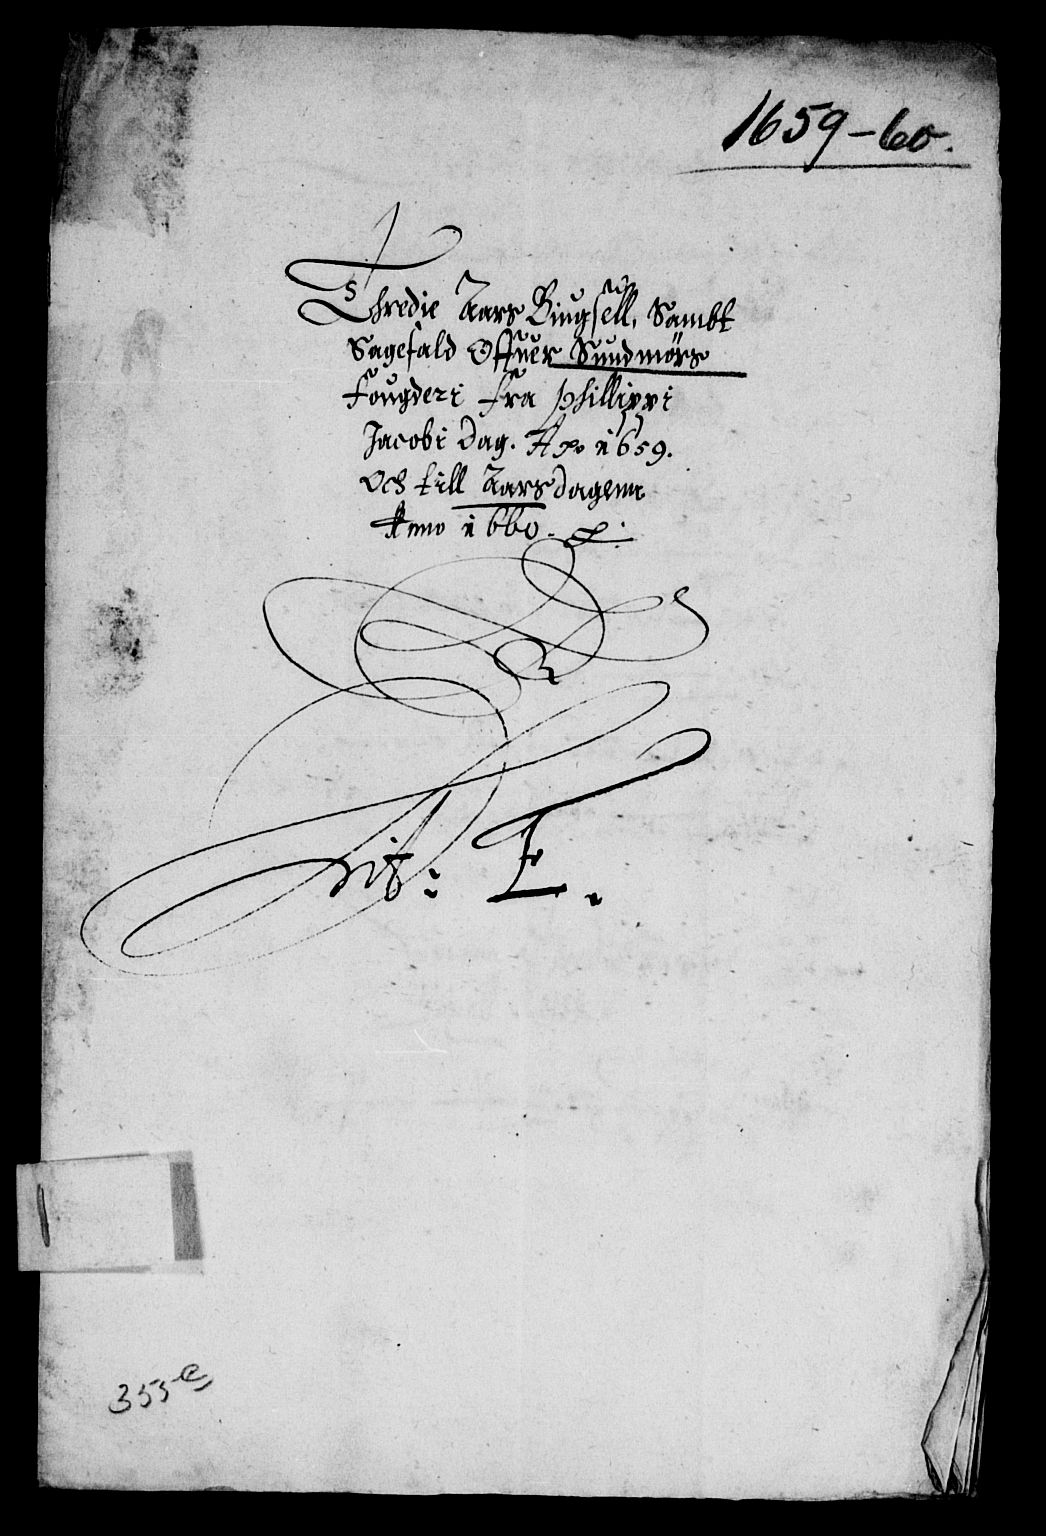 1659-60.
Thredie Aars Bingsell, Sambt
Sagefald Offuer Sundmörs
fougderi fra phillippi
Jacobi Dag. Ao 1659.
Och till Aarsdagenn
Anno 1660.
Lit: E.
355 e